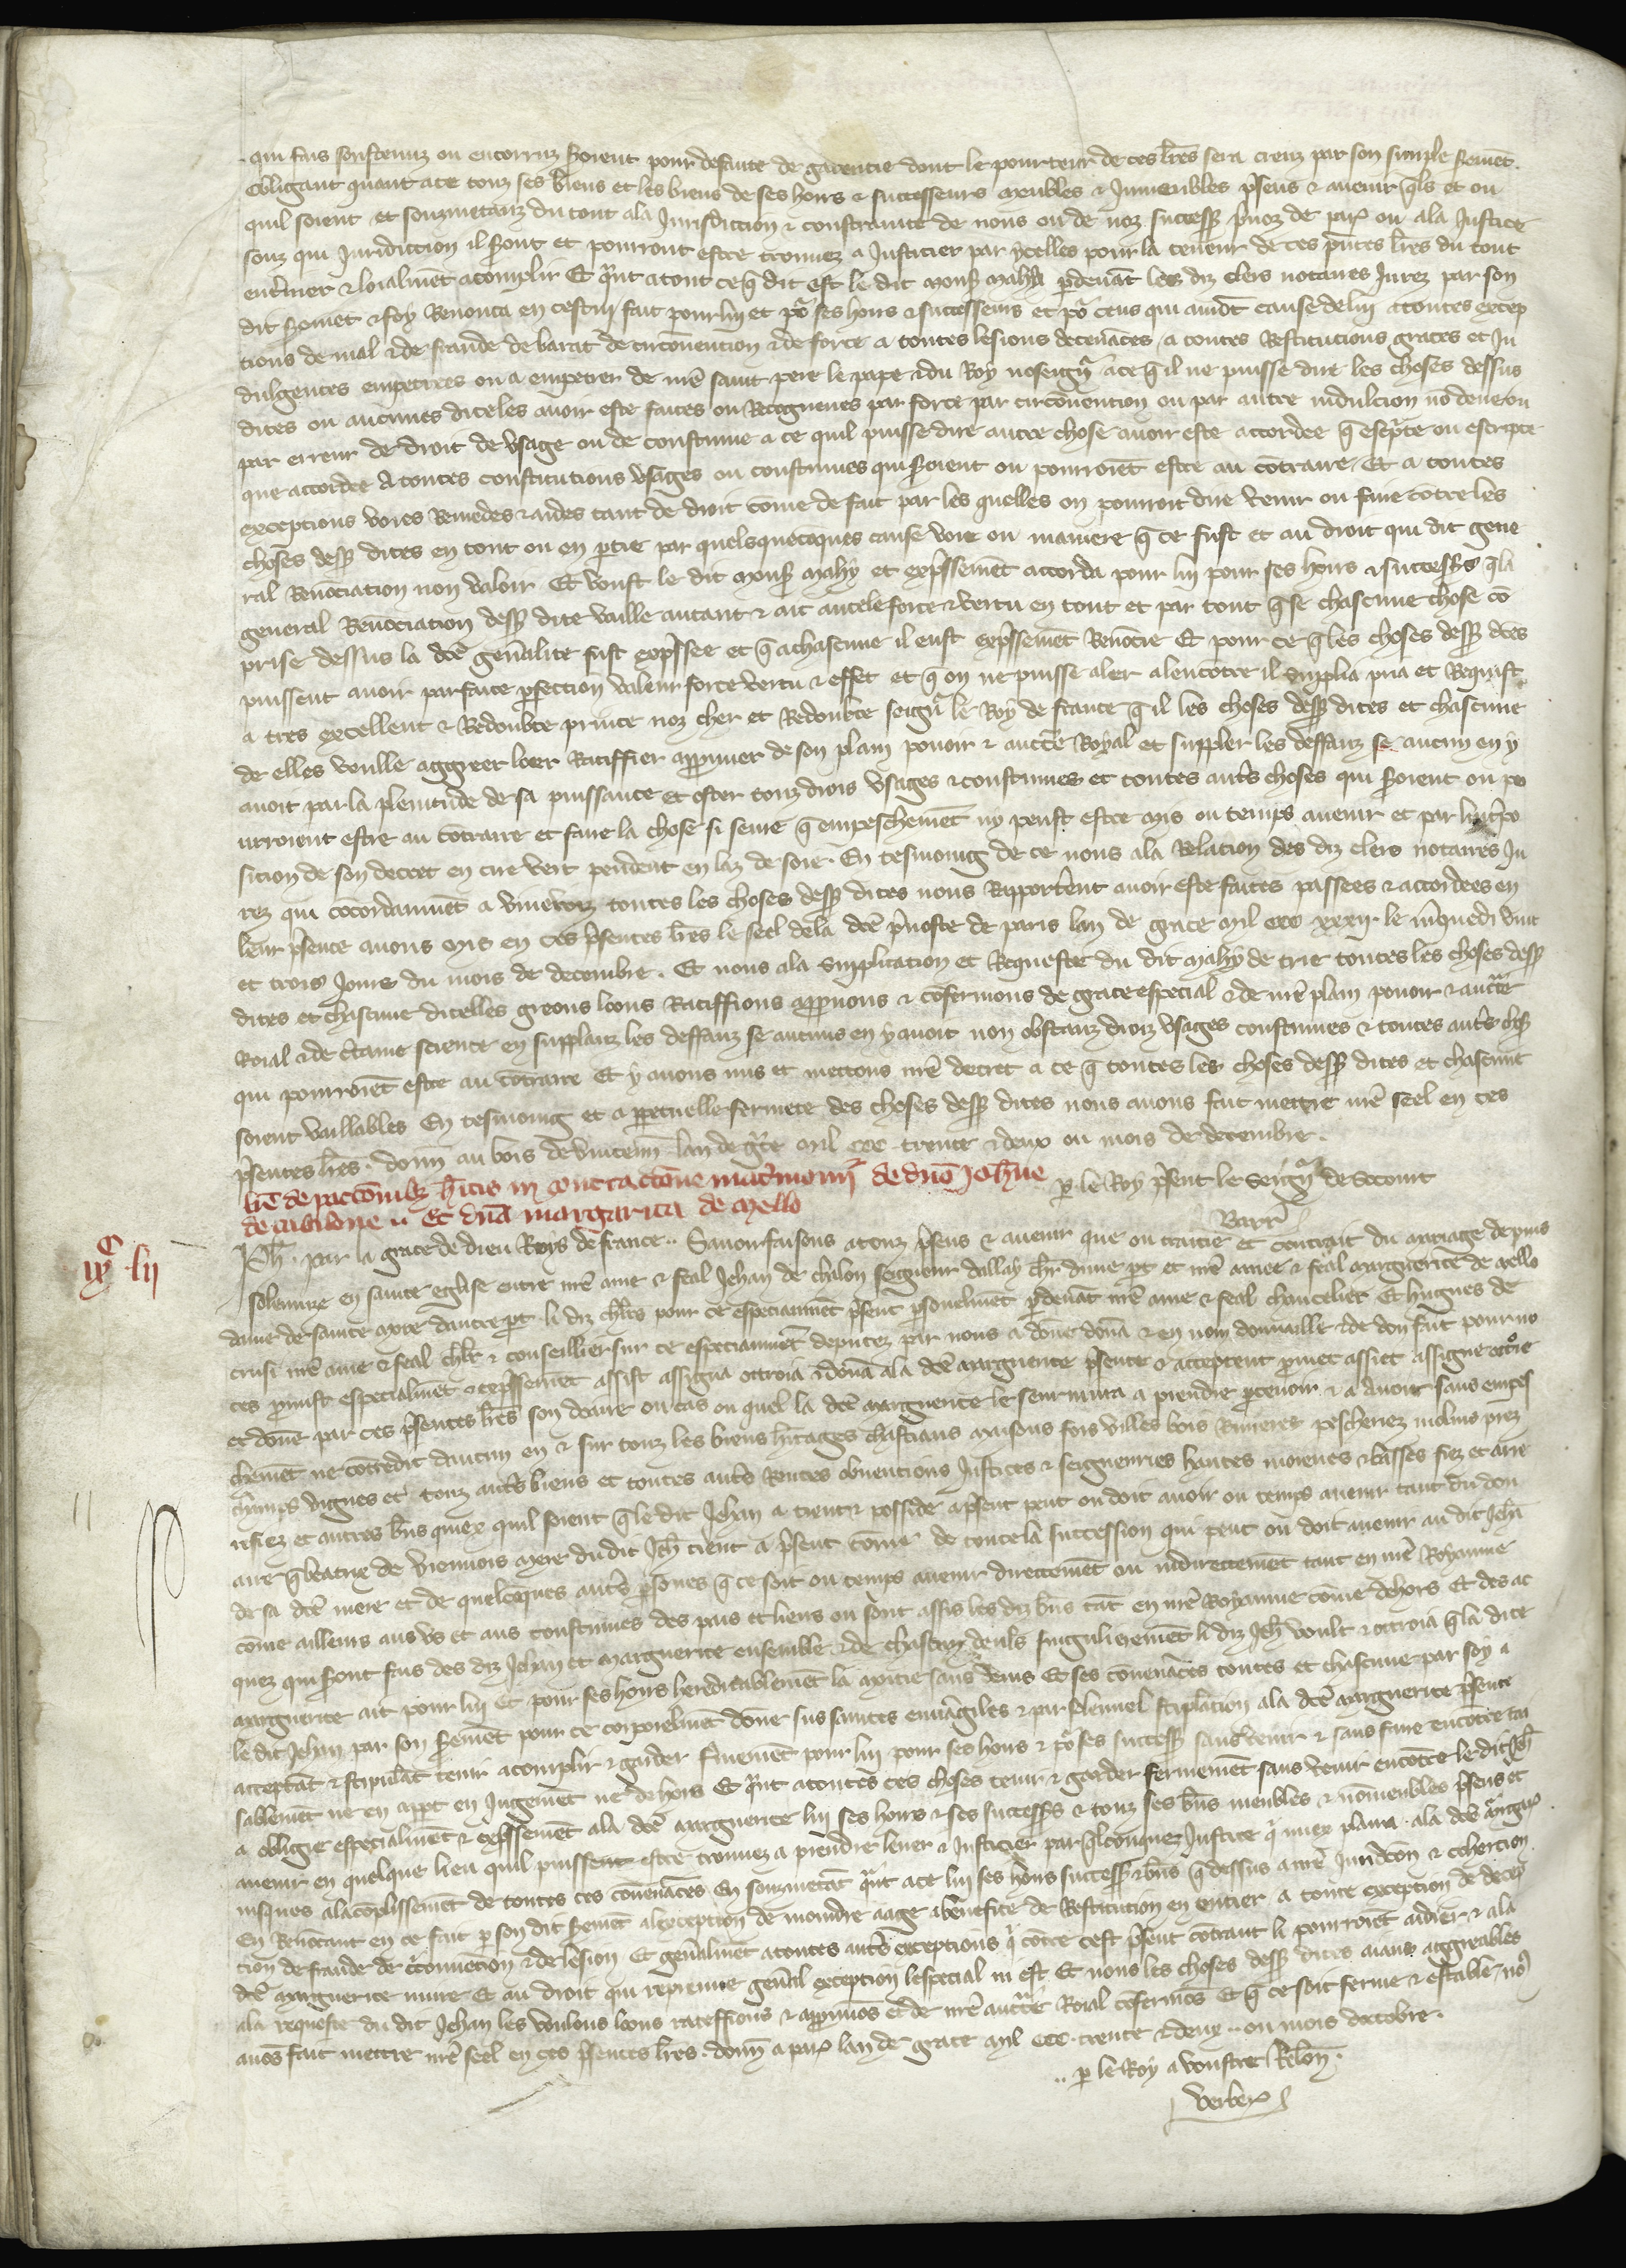 qui fais soustenuz ou encorruz seroient pour defaute de garentie dont le pourteur de ces lr̃es sera creuz par son simple seremẽt.
Obligant quant a ce touz ses biens et les biens de ses hoirs & successeurs meubles & Inmeubles p̃sens & auenir q̃ls et ou
quil soient et souzmetanz du tout ala Jurisdiction & constrainte de nous ou de noz success̃ p̃uoz de par̃ ou ala Justice
souz qui Juridiction il seront et pourront estre trouuez a Justicier par ycelles pour la teneur de ces p̃ntes lr̃es du tout
enteriner & loialmẽt acomplir Et q̃nt a tout ce q̃ dit est le dit mons̃ Mahy p̃deuãt les diz clers notaires Jurez par son
dit seremẽt & foy Renonca en cestui fait pour lui et po᷑ ses hoirs & successeurs et po᷑ ceus qui auiõt cause de lui a toutes excep
tions de mal & de fraude de barat de circonuention & de force a toutes lesions deceuãces / a toutes Restitucions graces et Jn
dulgences empetrees ou a empetrer de nr̃e saint pere le pape & du Roy noseign᷑ a ce q̃ il ne puisse dire les choses dessus
dites ou aucunes diceles auoir este faites ou Recogneues par force par circonuention ou par autre induction nõ deue ou
par erreur de droit de vsage ou de coustume a ce quil puisse dire autre chose auoir este accordee q̃ escp̃te ou escripte
que accordee A toutes constitutions vsages ou coustumes qui seroient ou pourroiẽt estre au cõtraire / Et a toutes
exceptions voies Remedes & aides tant de droit cõme de fait par les quelles on pourroit dire venir ou faire cõtre les
choses dess̃ dites en tout ou en p̃tie par quelsquecõques cause voie ou maniere q̃ ce fust et au droit qui dit gene
ral Renõciation non valoir Et voust le dit mons̃ Mahy et exp̃ssemẽt accorda pour lui pour ses hoirs & success̃s q̃ la
general Renõciation dess̃ dite vaille autant & ait autele force & vertu en tout et par tout q̃ se chascune chose cõ
prise dessus la dc̃e gen̄alite fust exp̃ssee et q̃ a chascune il eust exp̃ssemẽt Renõcie Et pour ce q̃ les choses dess̃ dc̃es
puissent auoir parfaite p̃fection valeur force vertu & effet et q̃ on ne puisse aler alencõtre il supplia pria et Requist
a tres excellent & Redoubte prince noz cher et Redoubte seign᷑ le Roy de france q̃ il les choses dess̃ dites et chascune
de elles veulle aggreer loer Ratiffier approuuer de son plain pouoir & auctẽ Royal et suppler les deffauz se aucun en y
auoit par la plenitude de sa puissance et oster touz drois vsages & coustumes et toutes aut̃s choses qui seroient ou po
urroient estre au cõtraire et faire la chose si seure q̃ empeschemẽt ny peust estre mis ou temps auenir et par lint̃po
sicion de son decret en cire vert pendent en laz de soie. En tesmoing de ce nous ala Relacion des diz clers notaires Ju
rez qui cõcordaument a viue voiz toutes les choses dess̃ dites nous Rapporterent auoir este faites passees & accordees en
leur p̃sence auons mis en ces p̃sentes lr̃es le seel dela dc̃e p̃uoste de paris lan de grace mil ccc xxxij. le mercredi vint
et trois Jours du mois de decembre. Et nous ala supplication et Requeste du dit Mahy de trie toutes les choses dess̃
dites et chascune dicelles greons loons Ratiffions approuuons & cõfermons de grace especial & de nr̃e plain pouoir & auctẽ
Roial & de c̃taine science en supplanz les deffauz se aucuns en y auoit non obstanz droiz vsages coustumes & toutes aut̃s chos̃
qui pourroiẽt estre au cõtraire Et y auons mis et mettons nr̃e decret a ce q̃ toutes les choses dess̃ dites et chascune
soient vaillables En tesmoing et a p̃petuelle fermete des choses dess̃ dites nous auons fait mettre nr̃e seel en ces
p̃sentes lr̃es. donñ au bois de vincenñ. lan de gr̃ce mil ccc. trente & deux ou mois de decembre.
p̃ le Roy p̃sent le seign᷑ de Socourt
Barr̃
lr̃e de pactiõnibꝫ hitis in contractiõne mat̃monij de dño Joh̃ne
de cabilone .. Et dña margarita de Mello
ixͨ. lij
Ph̃. par la grace de dieu Roys de france .. Sauoir faisons a touz p̃sens & auenir que ou traitie et contrait du mariage depuis
solennize en sainte eglise entre nr̃e ame & feal Jehan de chalon seigneur dallay ch̃lr dune p̃t et nr̃e amee & feal Marguerite de Mello
dame de sainte Mre dautre p̃t li diz ch̃lrs pour ce especiaument p̃sent p̃sonelmẽt p̃deuãt nr̃e ame & feal chancelier Et hugues de
crusi nr̃e ame & feal ch̃lr & conseillier sur ce especiaumẽt deputez par nous a dõne donã & en nom donnaille & de don fait pour no
ces p̃mist especialmẽt & exp̃ssemẽt assist assigna ottroia & donã ala dc̃e Marguerite p̃sente & acceptent p̃met assiet assigne ottrie
et dõne par ces p̃sentes lr̃es son doaire ou cas ou quel la dc̃e Marguerite le seuruiura a prendre p̃ceuoir & a auoir sans empes
chemẽt ne cõtredit daucun en & sur touz les biens h̃itages chastiaus maisons fors villes bois Riuieres pescheriez molins prez
champs vignes et touz aut̃s biens et toutes aut̃s Rentes obuentions Justices & seigneuries hautes moienes & basses fiez et arre
refiez et autres bñs quiex quil soient q̃ le dit Jehan a tient & posside a p̃sent peut ou doit auoir ou temps auenir tant du don
aire q̃ beatrix de viennois mere du dit Jeh̃ tient a p̃sent cõme de toute la succession qui peut ou doit auenir au dit Jeh̃
de sa dc̃e mere et de quelcõques aut̃s p̃sones q̃ ce soit ou temps auenir directemẽt ou indirectemẽt tant en nr̃e Royaume
cõme ailleurs aus vs et aus coustumes des pais et lieus ou sont assis les diz bñs tãt en nr̃e Royaume cõme dehors Et des ac
quez qui seront fais des diz Jehan et Marguerite ensemble & de chascun deuls singulierement li diz Jeh̃ voult & ottroia q̃ la dite
Marguerite ait pour lui et pour ses hoirs hereditablemẽt la moitie Et ses cõuenãces toutes et chascune par soy a
le dit Jehan par son seremẽt pour ce corporelmẽt dõne sus saintes euuãgiles & par solennel stiplation ala dc̃e Marguerite p̃sente
acceptãt & stipulãt tenir acomplir & garder fermemẽt pour lui pour ses hoirs & po᷑ ses success̃ sans venir & sans faire encõtre tai
sablemẽt ne en appt en Jugemẽt ne dehors Et q̃nt a toutes ces choses tenir & garder fermemẽt sans venir encõtre le dit Jeh̃
a obligie especialmẽt & exp̃ssemẽt ala dc̃e Marguerite lui ses hoirs & ses success̃s & touz ses bñs meubles & nõmeubles p̃sens et
auenir en quelque lieu quil puissent estre trouuez a prendre leuer & Justicier par q̃lconquez Justice q̃ miex plaira. ala dc̃e Margar̃
iusques alacõplissemẽt de toutes ces cõuenãces En souzmetãt q̃nt a ce lui ses hoirs success̃ & bñs q̃ dessus a nr̃e Juridc̃õn & cohertion
En Renõcant en ce fait p̃ son dit seremẽt alexception de moindre aage a benefice de Restitution en entier a toute exception de decep
tion de fraude de c̃conuention & de lesion Et gen̄almẽt a toutes aut̃s exceptions q̃ cõtre cest p̃sent cõtraut li pourroiẽt aidier & ala
dc̃e Marguerite nuire Et au droit qui repreuue gen̄al exception lespecial ni est Et nous les choses dess̃ dites aians aggreables
ala requeste du dit Jehan les voulons loons rateffions & approuuõs et de nr̃e auctẽ Roial cõfermõs Et q̃ ce soit ferme & estable / no᷒
auõs fait mettre nr̃e seel en ces p̃sentes lr̃es. donñ a par̃ lan de grace mil ccc. trente & deux .. ou mois doctobre.
.. p̃ le Roy a voustre Relõn.
verber̃